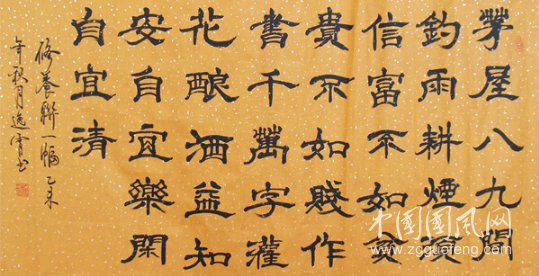 茅屋八九間
釣雨耕煙須
信富不如貧
貴不如賤作
書千萬字灌
花酿酒益知
安自宜樂閑
自宜清
修養聯一幅乙未
年秋月逸书
中国国风网
www.zgguofeng.com